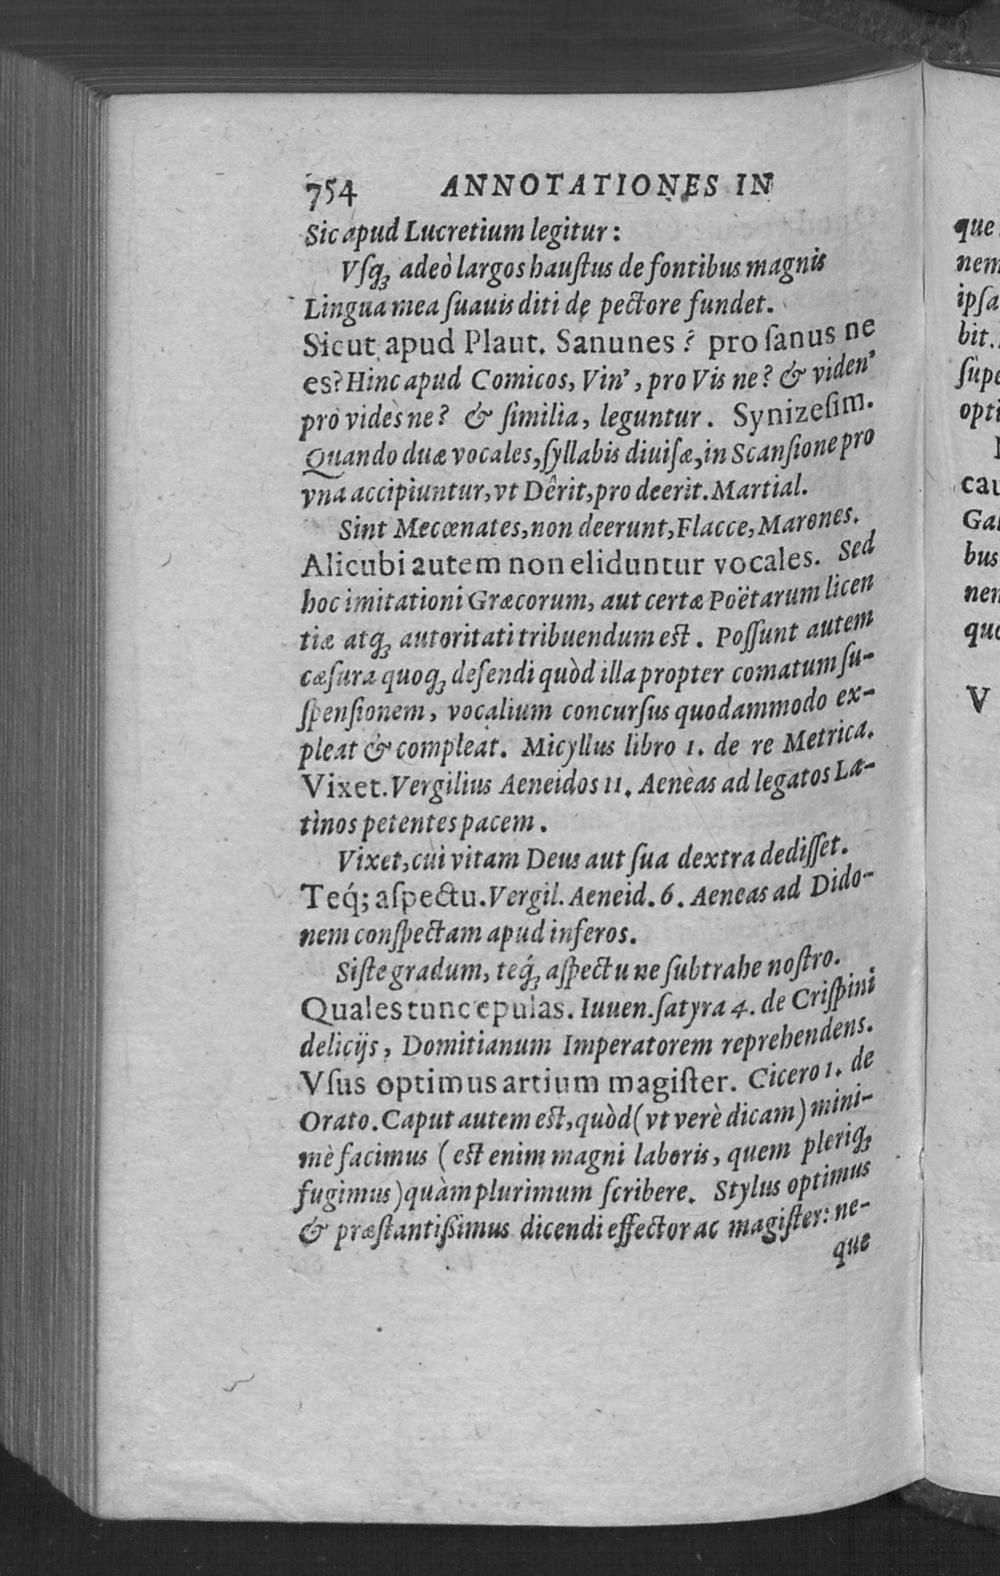 754 ANNOTATIONES IN
Sic apud Lucretium legitur:
Vſqꝫ adeò largos hauſtus de fontibus magnis
Lingua mea ſuauis diti de pectore fundet.
Sicut apud Plaut. Sanunes? pro ſanus ne
es? Hinc apud Comicos, Vin', pro Vis ne? & viden'
pro vides ne? & ſimilia, leguntur. Synizeſim.
Quando duæ vocales, ſyllabis diuiſæ, in Scanſione pro
vna accipiuntur, vt Dêrit, pro deerit. Martial.
Sint Mecœnates, non deerunt, Flacce, Marones.
Alicubi autem non eliduntur vocales. Sed
hoc imitationi Græcorum, aut certæ Poëtarum licen
tiæ atqꝫ autoritati tribuendum est. Poſſunt autem
cæſura quoqꝫ defendi quòd illa propter comatum ſu-
ſpenſionem, vocalium concurſus quodammodo ex-
pleat & compleat. Micyllus libro 1. de re Metrica.
Vixet. Vergilius Aeneidos 11. Aeneas ad legatos La-
tinos petentes pacem.
Vixet, cui vitam Deus aut ſua dextra dediſſet.
Teq́; aſpectu. Vergil. Aeneid. 6. Aeneas ad Dido-
nem conſpectam apud inferos.
Siſte gradum, teq́ꝫ aſpectu ne ſubtrahe noſtro.
Quales tunc epulas. Iuuen. ſatyra 4. de Criſpini
delicijs, Domitianum Imperatorem reprehendens.
Vſus optimus artium magiſter. Cicero 1. de
Orato. Caput autem est, quòd (vt verè dicam) mini-
mè facimus (est enim magni laboris, quem pleriqꝫ
fugimus) quàm plurimum ſcribere. Stylus optimus
& præſtantißimus dicendi effector ac magiſter: ne-
que
que
nem
ipſa
bit.
ſupe
opti
cau
Gal
bus
nem
quo
V